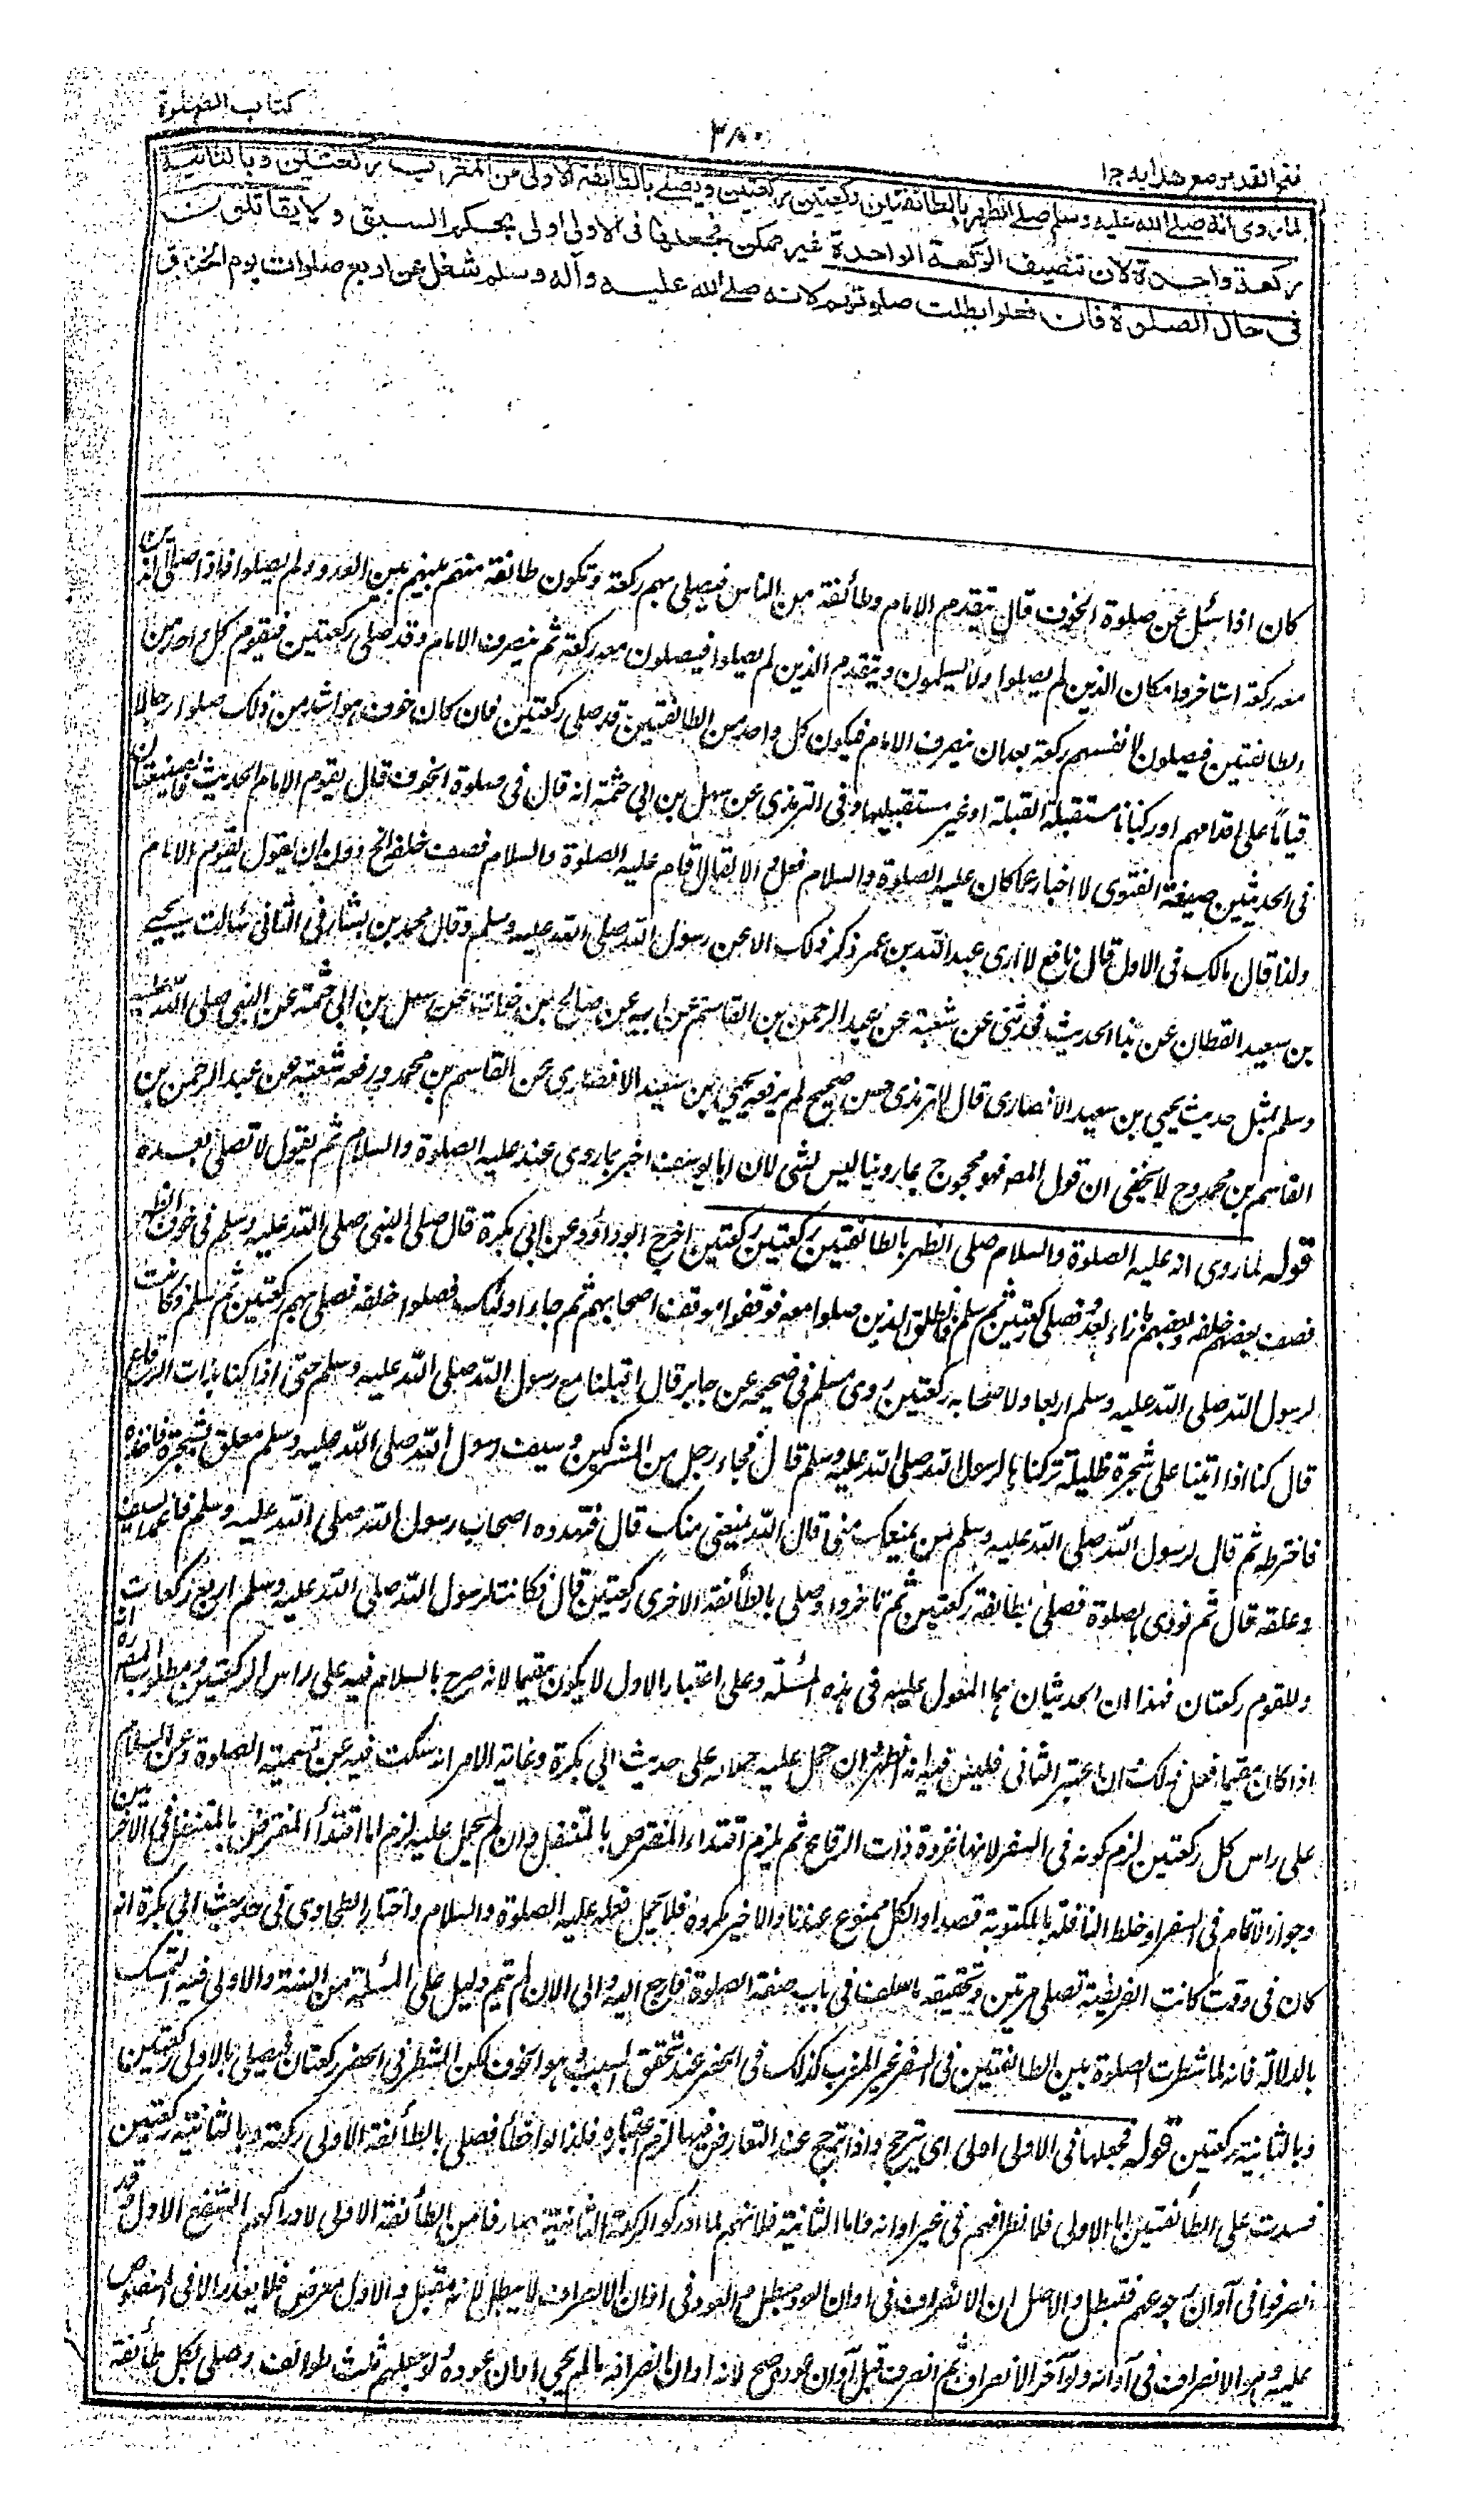 كتاب الصلوة
٣٨٠
فتح القدير مع هدايه ج١
لما روى انه صلى الله عليه وسلم صلى الظهر بالطائفتين ركعتين ركعتين ويصلى بالطائفة الاولى من المغرب ركعتين وبالثانية
ركعة واحدة لان تنصيف الركعة الواحدة غير ممكن فجعلها فى الاولى اولى بحكم السبق ولا يقاتلون
فى حال الصلوة فان فعلوا بطلت صلوتهم لانه صلى الله عليه وآله وسلم شغل عن اربع صلوات يوم الخندق
كان اذا سئل عن صلوة الخوف قال يتقدم الامام وطائفة من الناس فيصلى بهم ركعة وتكون طائفة منهم بينهم وبين العدو ولم يصلوا فاذا صلى الذين
معه ركعة استاخروا مكان الذين لم يصلوا ولا يسلمون ويتقدم الذين لم يصلوا فيصلون معه ركعة ثم ينصرف الامام وقد صلى ركعتين فيقوم كل واحد من
الطائفتين فيصلون لانفسهم ركعة بعد ان ينصرف الامام فيكون كل واحد من الطائفتين قد صلى ركعتين فان كان خوف هو اشد من ذلك صلوا رجالا
قياما على اقدامهم او ركبانا مستقبلة القبلة او غير مستقبليها وفى الترمذى عن سهل بن ابى حثمة انه قال فى صلوة الخوف قال يقوم الامام الحديث فالصيغتان
فى الحديثين صيغة الفتوى لا اخبار عما كان عليه الصلوة والسلام فعل والا لقال قام عليه الصلوة والسلام فصف خلفه الخ دون ان يقول يقوم الامام
ولذا قال مالك فى الاول قال نافع لا ارى عبد الله بن عمر ذكر ذلك الا عن رسول الله صلى الله عليه وسلم وقال محمد بن بشار فى الثانى سألت يحيى
بن سعيد القطان عن هذا الحديث فحدثنى عن شعبة عن عبد الرحمن بن القاسم عن ابيه عن صالح بن خوات عن سهل بن ابى حثمة عن النبى صلى الله عليه
وسلم بمثل حديث يحيى بن سعيد الانصارى قال الترمذى حسن صحيح لم يرفعه يحيى بن سعيد الانصارى عن القاسم بن محمد ورفعه شعبة عن عبد الرحمن بن
القاسم بن محمد وح لا يخفى ان قول المصه فهو محجوج بما روينا ليس بشى لان ابا يوسف اخبر بما روى عنه عليه الصلوة والسلام ثم يقول لا تصلى بعده
قوله لما روى انه عليه الصلوة والسلام صلى الظهر بالطائفتين ركعتين ركعتين اخرج ابوداؤد عن ابى بكرة قال صلى النبى صلى الله عليه وسلم فى خوف الظهر
فصف بعضهم خلفه وبعضهم بازاء العدو فصلى ركعتين ثم سلم فانطلق الذين صلوا معه فوقفوا موقف اصحابهم ثم جاء اولئك فصلوا خلفه فصلى بهم ركعتين ثم سلم فكانت
لرسول الله صلى الله عليه وسلم اربعا ولاصحابه ركعتين روى مسلم فى صحيحه عن جابر قال اقبلنا مع رسول الله صلى الله عليه وسلم حتى اذا كنا بذات الرقاع
قال كنا اذا اتينا على شجرة ظليلة تركناها لرسول الله صلى الله عليه وسلم قال فجاء رجل من المشركين وسيف رسول الله صلى الله عليه وسلم معلق بشجرة فاخذه
فاخترطه ثم قال لرسول الله صلى الله عليه وسلم من يمنعك منى قال الله يمنعنى منك قال فتهدده اصحاب رسول الله صلى الله عليه وسلم فاغمد السيف
وعلقه قال ثم نودى بالصلوة فصلى بطائفة ركعتين ثم تاخروا وصلى بالطائفة الاخرى ركعتين قال فكانت لرسول الله صلى الله عليه وسلم اربع ركعات
وللقوم ركعتان فهذا ان الحديثان هما المعول عليه فى هذه المسئلة وعلى اعتبار الاول لا يكون مقيما لانه صرح بالسلام فيه على راس الركعتين ومطلوب المصره انه
اذا كان مقيما فعل ذلك ان اعتبر الثانى فليس فيه انه الظهر ان حمل عليه حملا له على حديث ابى بكرة وغاية الامر انه سكت فيه عن تسمية الصلوة وعن السلام
على راس كل ركعتين لزم كونه فى السفر لانها غزوة ذات الرقاع ثم يلزم اقتداء المفترض بالمتنفل وان لم يحمل عليه لزم اما اقتداء المفترض بالمتنفل فى الاخريين
وجواز الاتمام فى السفر او خلط النافلة بالمكتوبة قصدا والكل ممنوع عندنا والاخير مكروه فلا يحمل فعله عليه الصلوة والسلام واختار الطحاوى فى حديث ابى بكرة انه
كان فى وقت كانت الفريضة تصلى مرتين وتحقيقه ما سلف فى باب صفة الصلوة فارجع اليه والى الان لم يتم دليل على المسئلة من السنة والاولى فيه التمسك
بالدلالة فانه لما شطرت الصلوة بين الطائفتين فى السفر غير المغرب كذلك فى الحضر عند تحقق السبب وهو الخوف لكن الشطر فى الحضر ركعتان فيصلى بالاولى ركعتين
وبالثانية ركعتين قوله فجعلها فى الاولى اولى اى يترجح واذا ترجح عند التعارض فيها لزم اعتباره فلذا لو اخطأ فصلى بالطائفة الاولى ركعة وبالثانية ركعتين
فسدت على الطائفتين اما الاولى فلانصرافهم فى غير اوانه واما الثانية فلانهم لما ادركوا الركعة الثانية صاروا من الطائفة الاولى لادراكهم الشفع الاول وقد
انصرفوا فى آوان رجوعهم فتبطل والاصل ان الانصراف فى اوان العود مبطل والعود فى اوان الانصراف لا يبطل لانه مقبل والاول معرض فلا يعذر الا فى المنصوص
عليه وهو الانصراف فى آوانه ولو آخر الانصراف ثم انصرف قبل آوان عوده صح لانه اوان انصرافه ما لم يجئ اوان عوده ولو جعلهم ثلث طوائف وصلى بكل طائفة